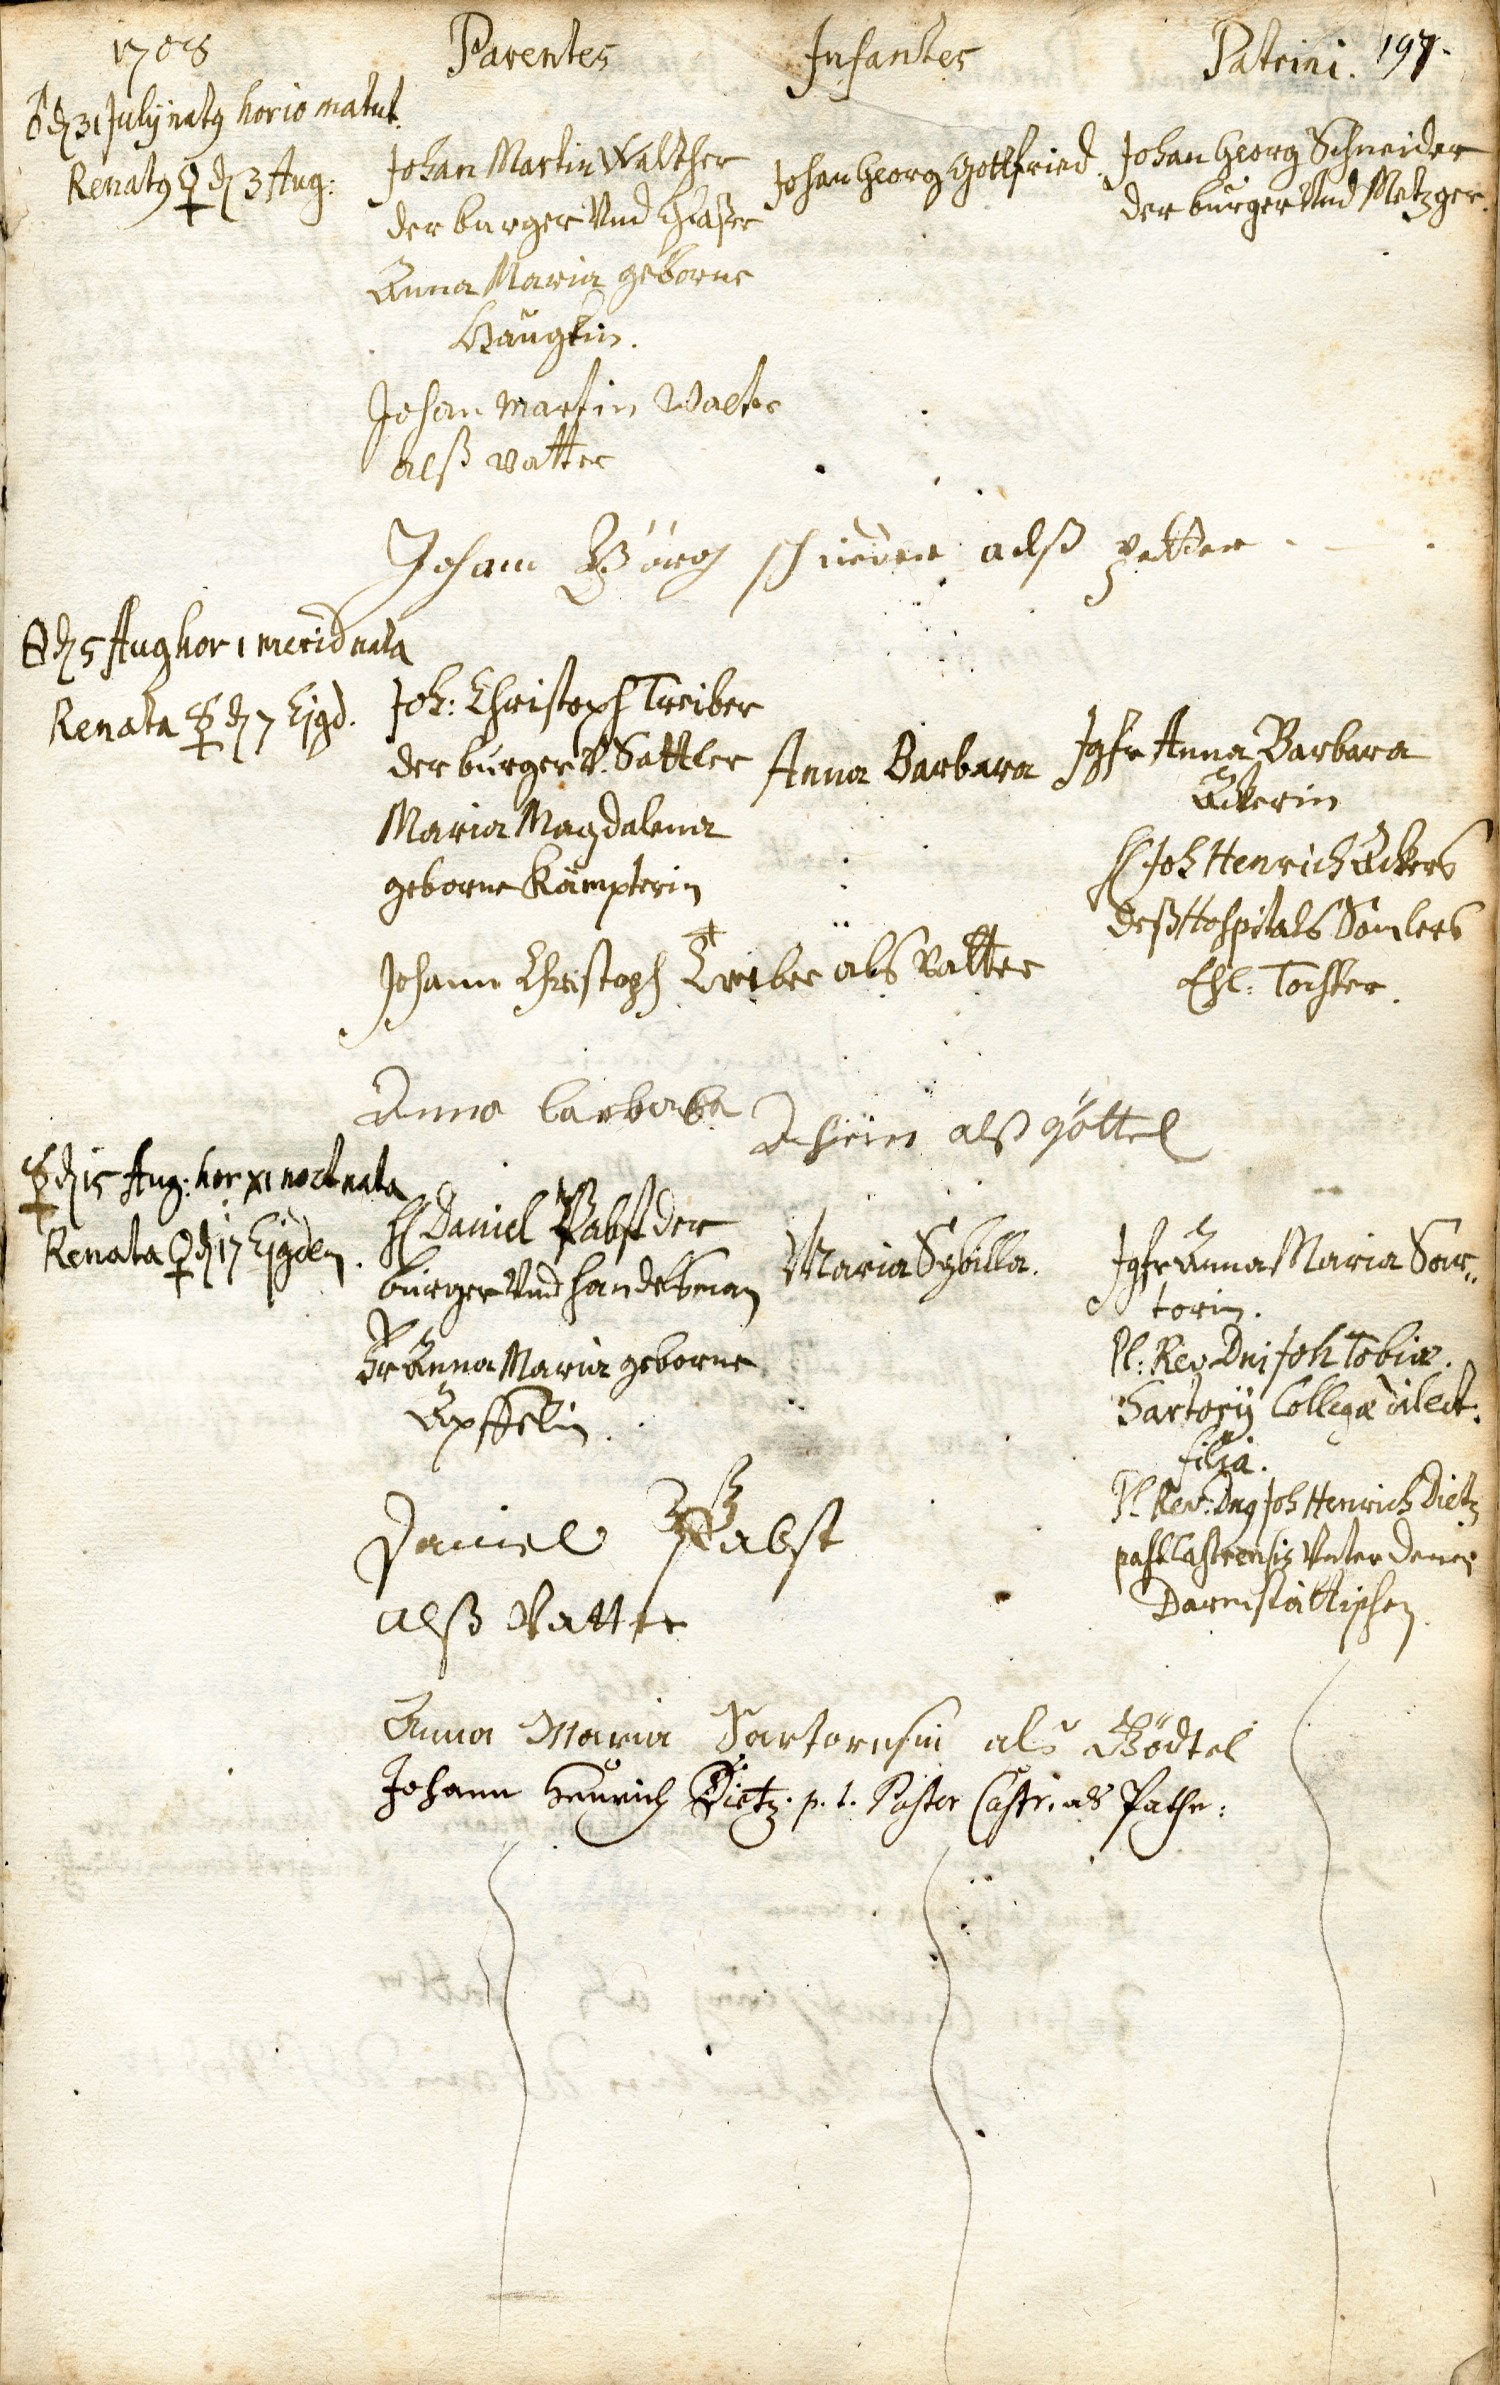 1708 Parentes Infantes Patrini. 197.
♂ d 31 July nat9 hor 10 matut.
Renat9 ♀ d 3 Aug:
Johan Martin Walther
der burger Und Glaßer
Anna Maria geborne
Haugkin.
Johan Georg Gottfried.
Johan Georg Schneider
der burger Und Metzger.
Johan Martin Walter
alß vatter
Johann Görg schneider alß petter
d 5 Aug hor 1 merid nata
Renata ☿ d 7 Ejgd.
Joh: Christoph Treiber
der burger V. Sattler
Maria Magdalena
geborne Kämpterin
Anna Barbara
Jgfr Anna Barbara
Ackerin
H Joh Henrich Ackers
deß Hospitals Samlers
Ehl: Tochter.
Johann Christoph Treiber als Vatter
Anna barbarba alß göttel
☿ d 15 Aug: hor XI noct nata
Renata ♀ d 17 Ejgdem.
H Daniel Pabst der
burger Und handelsman
Fr Anna Maria geborne
Äpffelin.
Maria Sybilla.
Jgfr Anna Maria Sar„
torin.
Pl: Rev Dni Joh Tobiæ.
Sartorij Collegæ dilect.
filia.
Pl Rev: Dn9 Joh Henrich Dietz
past Castrensis Unter denen
Darmstättischen
Daniel Pabst
alß Vatter
Anna Maria Sartoriusin als Gödtel
Johann Henrich Dietz. p. t. Pastor Castr. als Pathe: